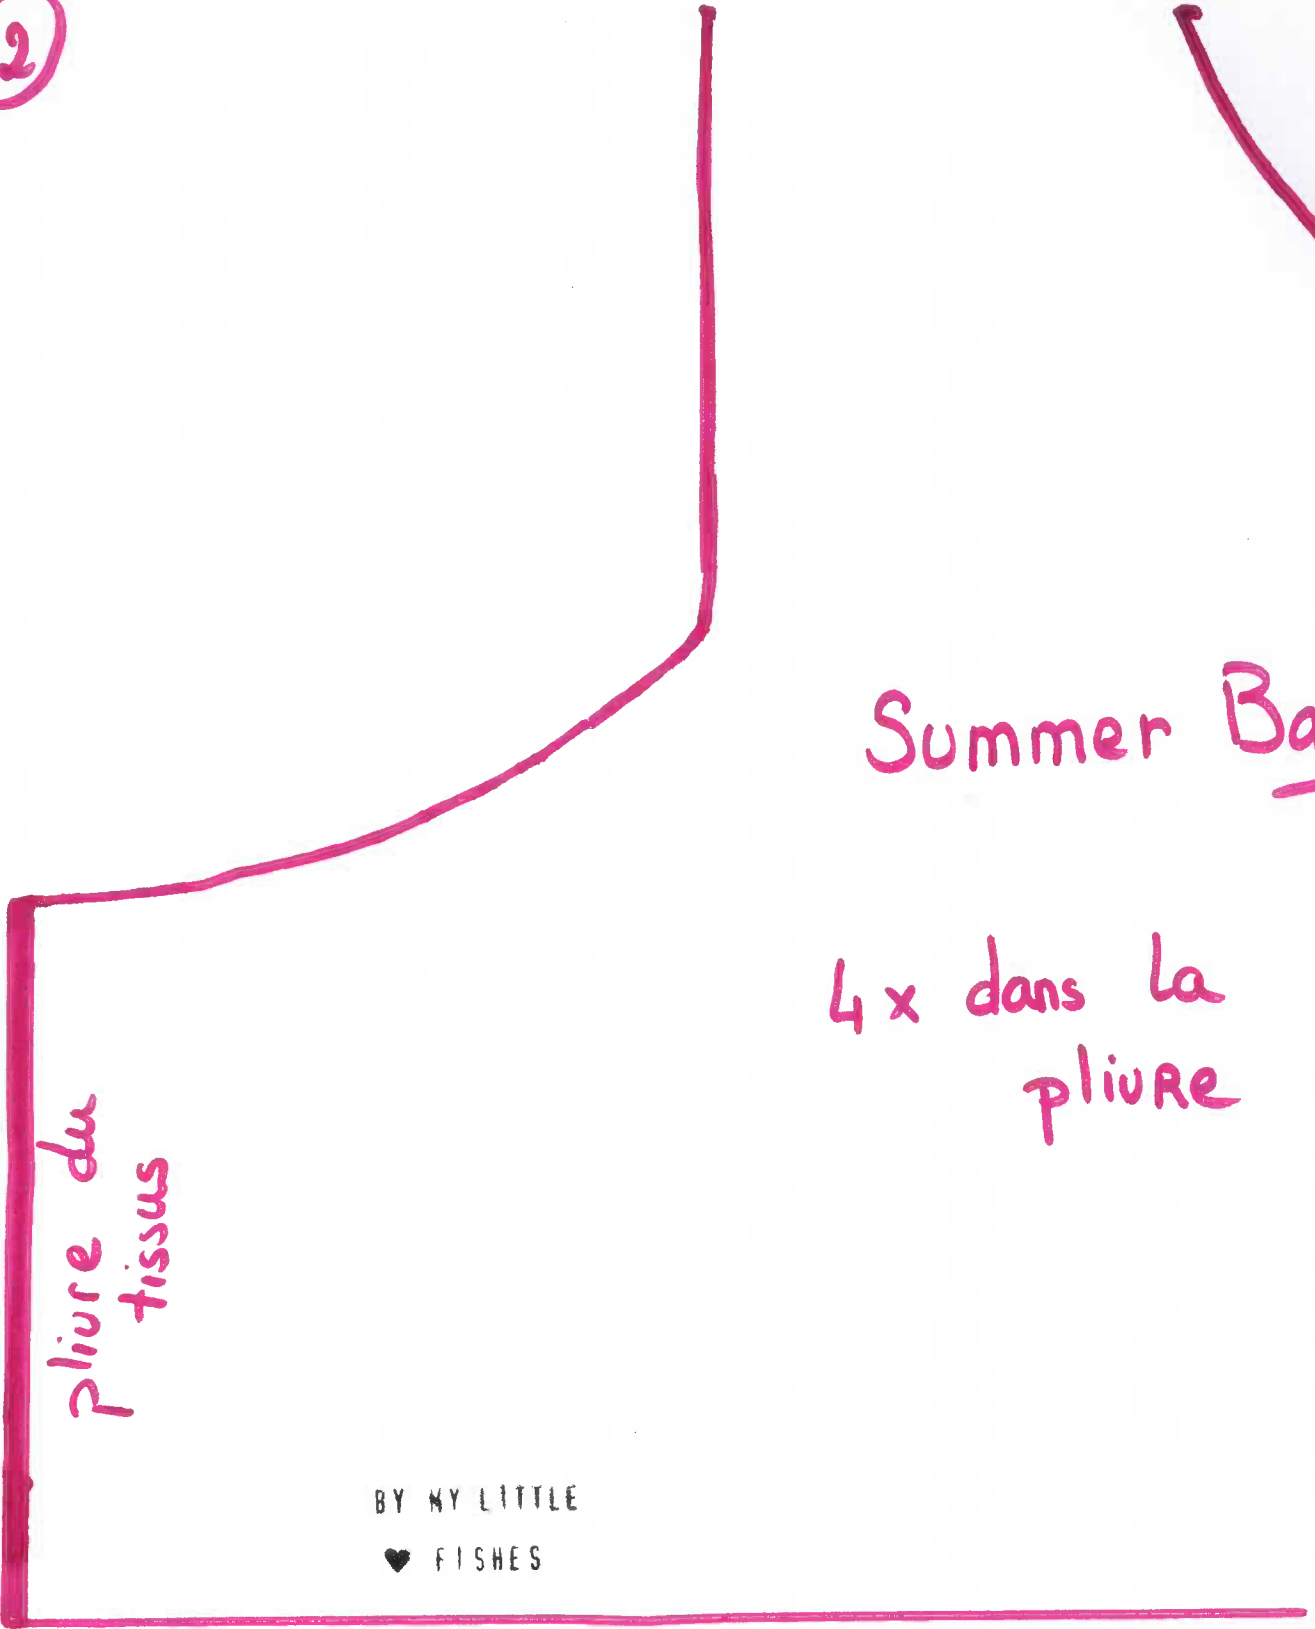 2
Summer Ba
4x dans la
plivre
plivre du
tissus
BY MY LITTLE
♥ FISHES